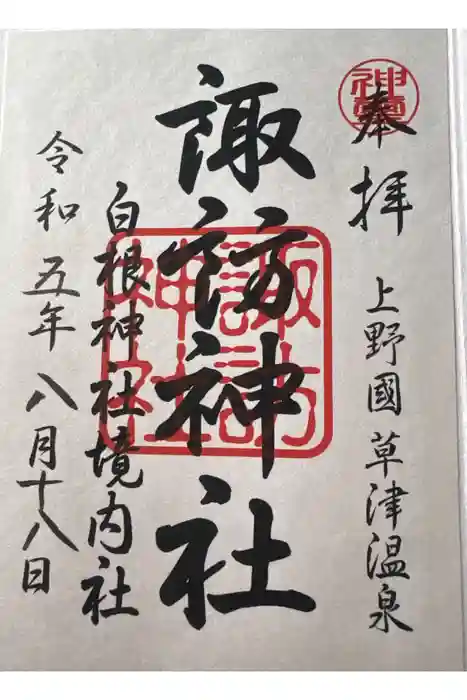 奉拝
上野國草津温泉
諏訪神社
白根神社境内社
令和五年八月十八日
諏訪
神社